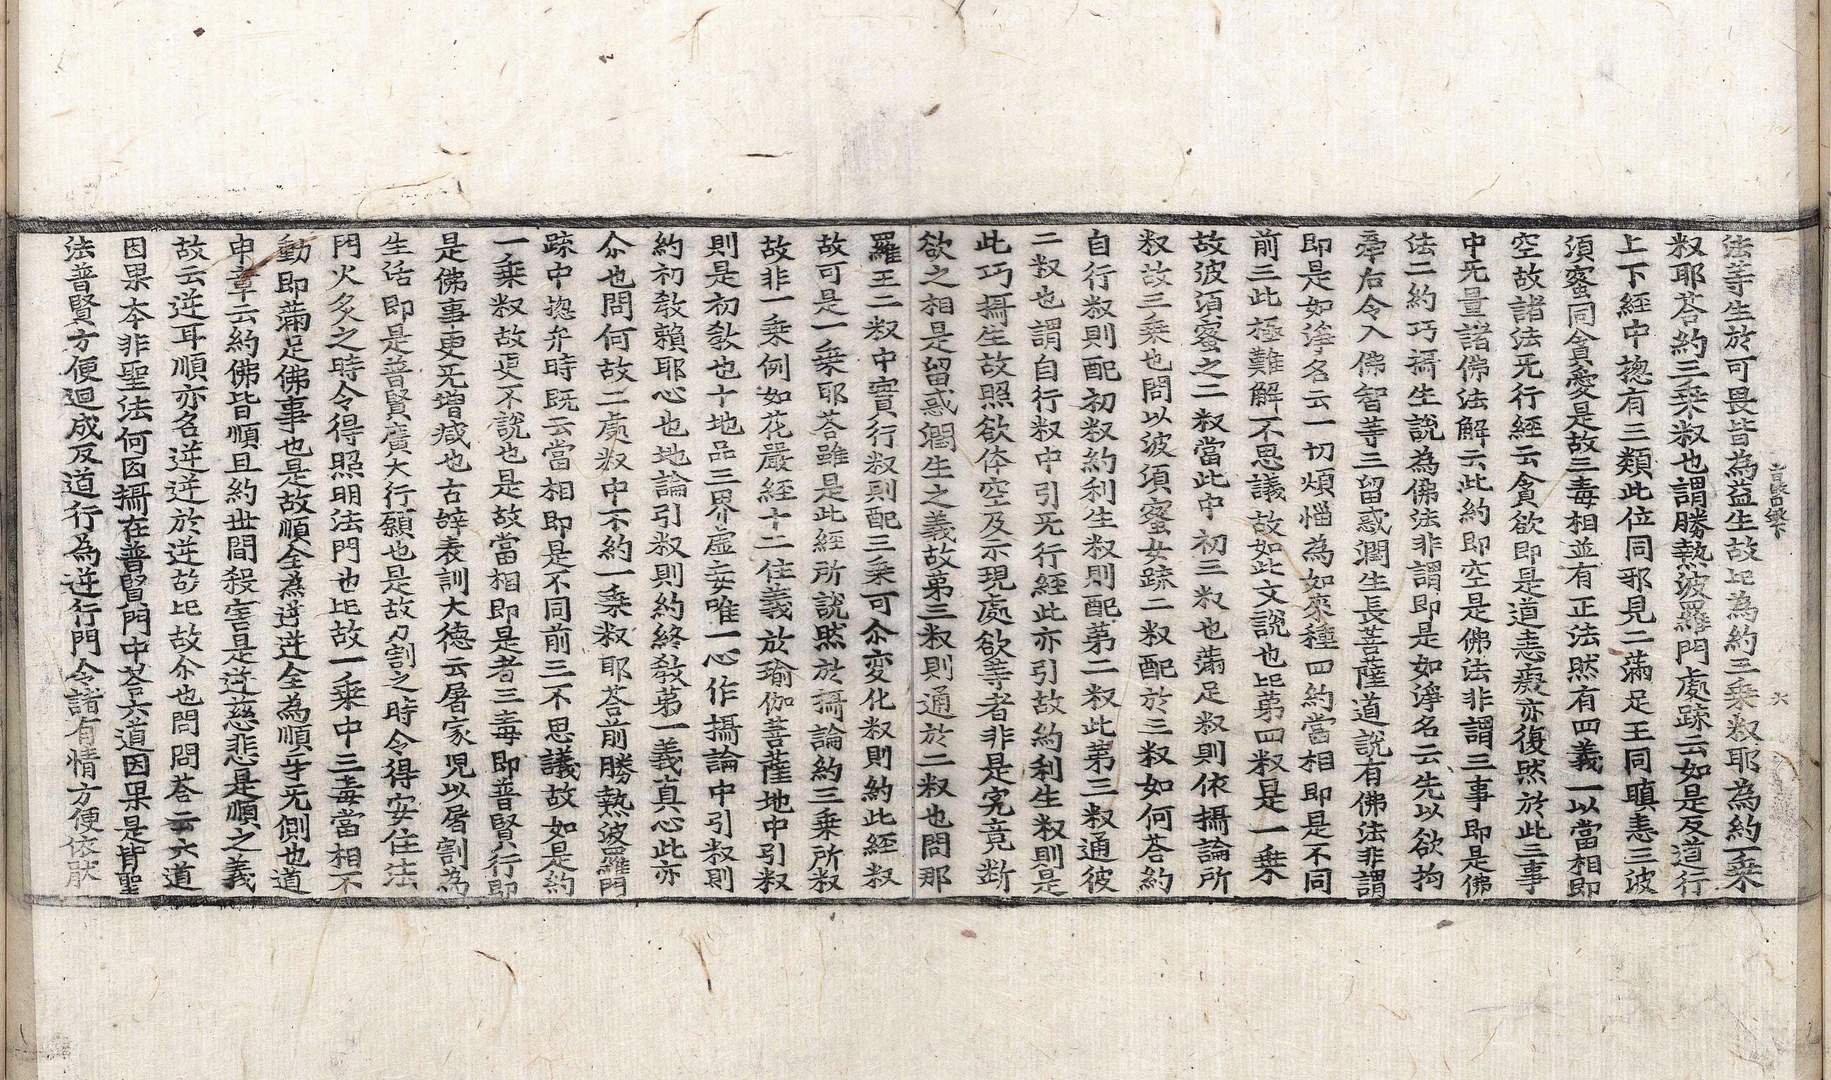 法等生於可畏皆為益生故比為約三乘叔耶為約一乘
叔耶荅約三乘叔也謂勝熱波羅門處踈云如是反道行
上下經中揔有三類此位同邪見二滿足王同瞋恚三波
須蜜同貪愛是故三毒相並有正法然有四義一以當相即
空故諸法旡行經云貪欲即是道恚癡亦復然於此三事
中旡量諸佛法解云此約即空是佛法非謂三事即是佛
法二約巧攝生說為佛法非謂即是如淨名云先以欲拘
牽右令入佛智等三留惑潤生長菩薩道說有佛法非謂
即是如淨名云一切煩惱為如來種四約當相即是不同
前三此極難解不思議故如此文說也比第四叔是一乘
故波須蜜之二叔當此中初三叔也滿足叔則依攝論所
叔故三乘也問以波須蜜女踈二叔配於三叔如何荅約
自行叔則配初叔約利生叔則配第二叔此第三叔通彼
二叔也謂自行叔中引旡行經此亦引故約利生叔則是
此巧攝生故照欲体空及示現處欲等者非是究竟断
欲之相是留惑潤生之義故第三叔則通於二叔也問那
羅王二叔中實行叔則配三乘可尒変化叔則約此經叔
故可是一乘耶荅雖是此經所說然於攝論約三乘所叔
故非一乘例如花嚴經十二住義於瑜伽菩薩地中引叔
則是初敎也十地品三界虛妄唯一心作攝論中引叔則
約初敎賴耶心也地論引叔則約終敎第一義真心此亦
尒也問何故二處叔中不約一乘叔耶荅前勝熱波羅門
踈中揔弁時既云當相即是不同前三不思議故如是約
一乘叔故更不說也是故當相即是者三毒即普賢行即
是佛事更旡增减也古辝表訓大德云屠家児以屠割為
生活即是普賢廣大行願也是故刀割之時令得安住法
門火炙之時令得照明法門也比故一乘中三毒當相不
動即滿足佛事也是故順全為逆逆全為順牙旡側也道
申章云約佛皆順且約世間殺害是逆慈悲是順之義
故云逆耳順亦名逆逆於逆故比故尒也問問荅云六道
因果本非聖法何因攝在普賢門中荅六道因果是皆聖
法普賢方便迴成反道行為逆行門令諸有情方便依猒